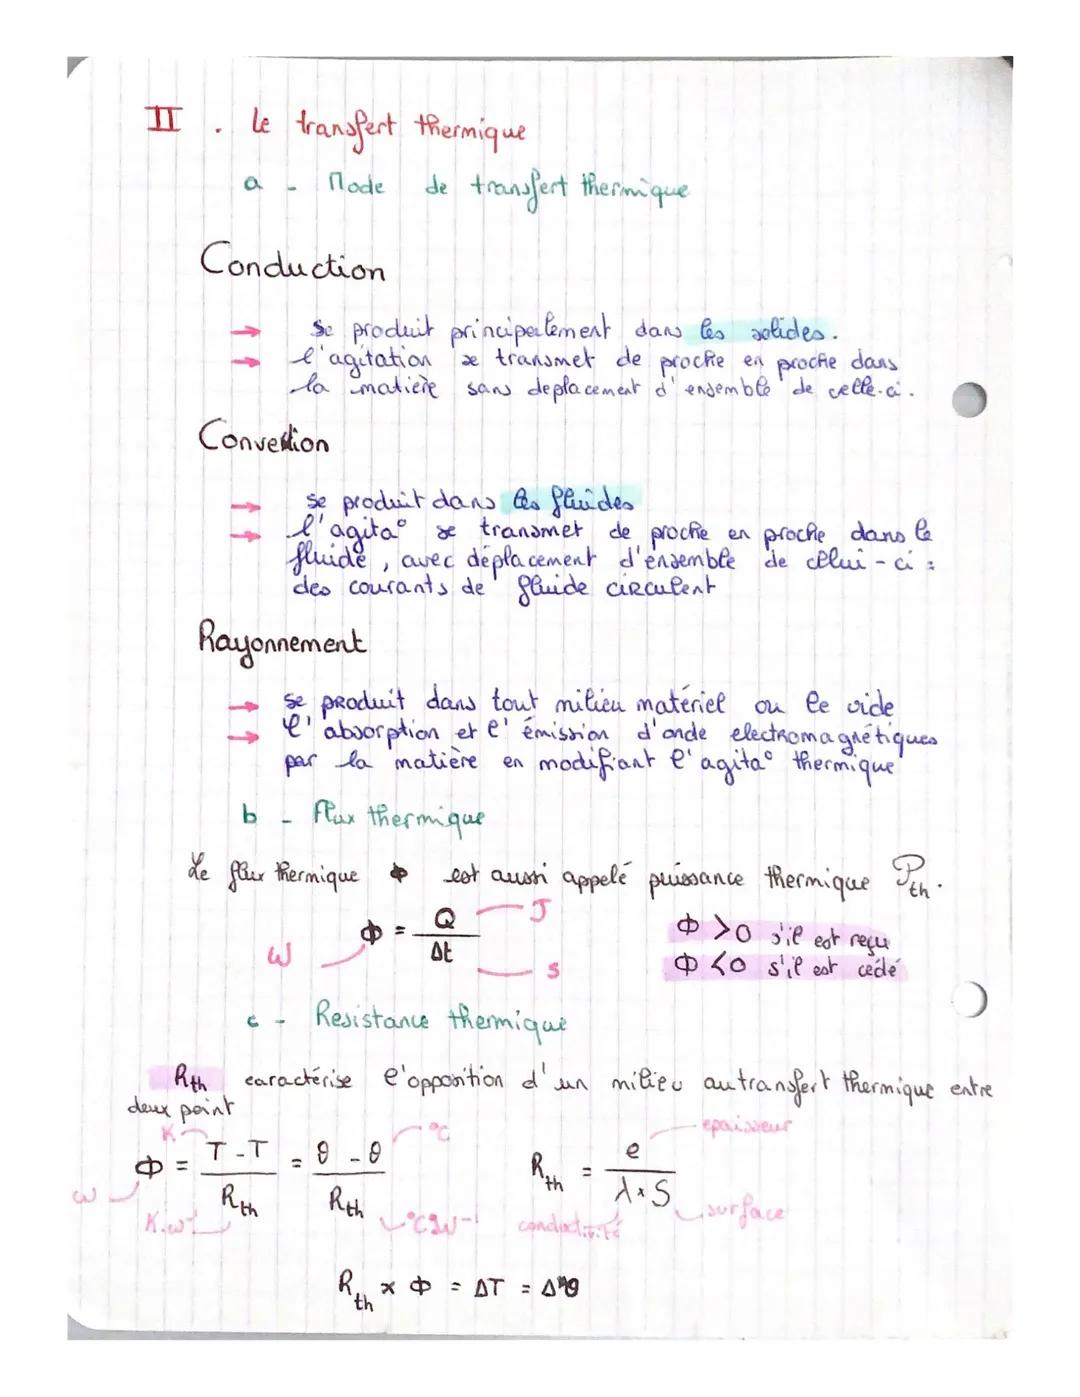 II . Le transfert thermique
a - Mode de transfert thermique
Conduction
→ se produit principalement dans les solides.
→ l'agitation se transmet de proche en proche dans
la matière sans deplacement d'ensemble de celle-ci.
Convection
→ se produit dans les fluides
→ l'agita° se transmet de proche en proche dans le
fluide, avec déplacement d'ensemble de celui-ci :
des courants de fluide circulent
Rayonnement
→ se produit dans tout milieu matériel ou le vide
→ l'absorption et l'émission d'onde electromagnétiques
par la matière en modifiant l'agita° thermique
b - Flux thermique
Le flux thermique Φ est aussi appelé puissance thermique Pth.
Φ = Q / Δt
W J s
Φ > 0 s'il est reçu
Φ < 0 s'il est cédé
c - Resistance thermique
Rth caractérise l'opposition d'un milieu au transfert thermique entre
deux point
Φ = T - T / Rth = θ - θ / Rth
W K K.W-1 °C °C.W-1
Rth = e / λ × S
epaisseur conductivité surface
Rth × Φ = ΔT = Δθ